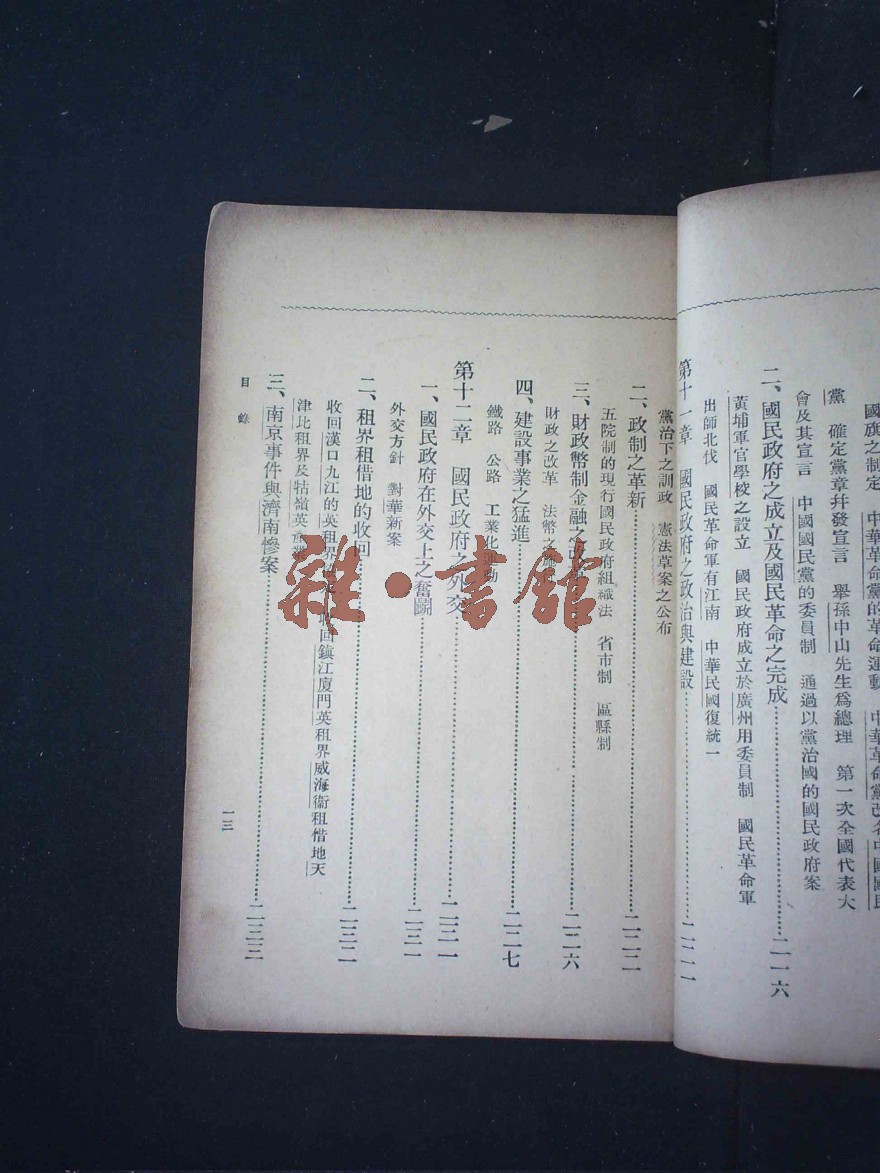 國旗之制定　中華革命黨的革命運動　中華革命黨改名中國國民
黨　確定黨章幷發宣言　舉孫中山先生爲總理　第一次全國代表大
會及其宣言　中國國民黨的委員制　通過以黨治國的國民政府案
二、國民政府之成立及國民革命之完成……二一六
黃埔軍官學校之設立　國民政府成立於廣州用委員制　國民革命軍
出師北伐　國民革命軍有江南　中華民國復統一
第十一章　國民政府之政治與建設……
黨治下之訓政　憲法草案之公布
二、政制之革新……二二二
五院制的現行國民政府組織法　省市制　區縣制
三、財政幣制金融之改……二二六
財政之改革　法幣之
四、建設事業之猛進……二二七
鐵路　公路　工業化運動
第十二章　國民政府之外交……二三一
一、國民政府在外交上之奮鬬……二三一
外交方針　對華新案
二、租界租借地的收回……二三二
收回漢口九江的英租界　收回鎮江廈門英租界威海衞租借地天
津比租界及牯嶺英
三、南京事件與濟南慘案……二三三
目錄
一三
雜·書館